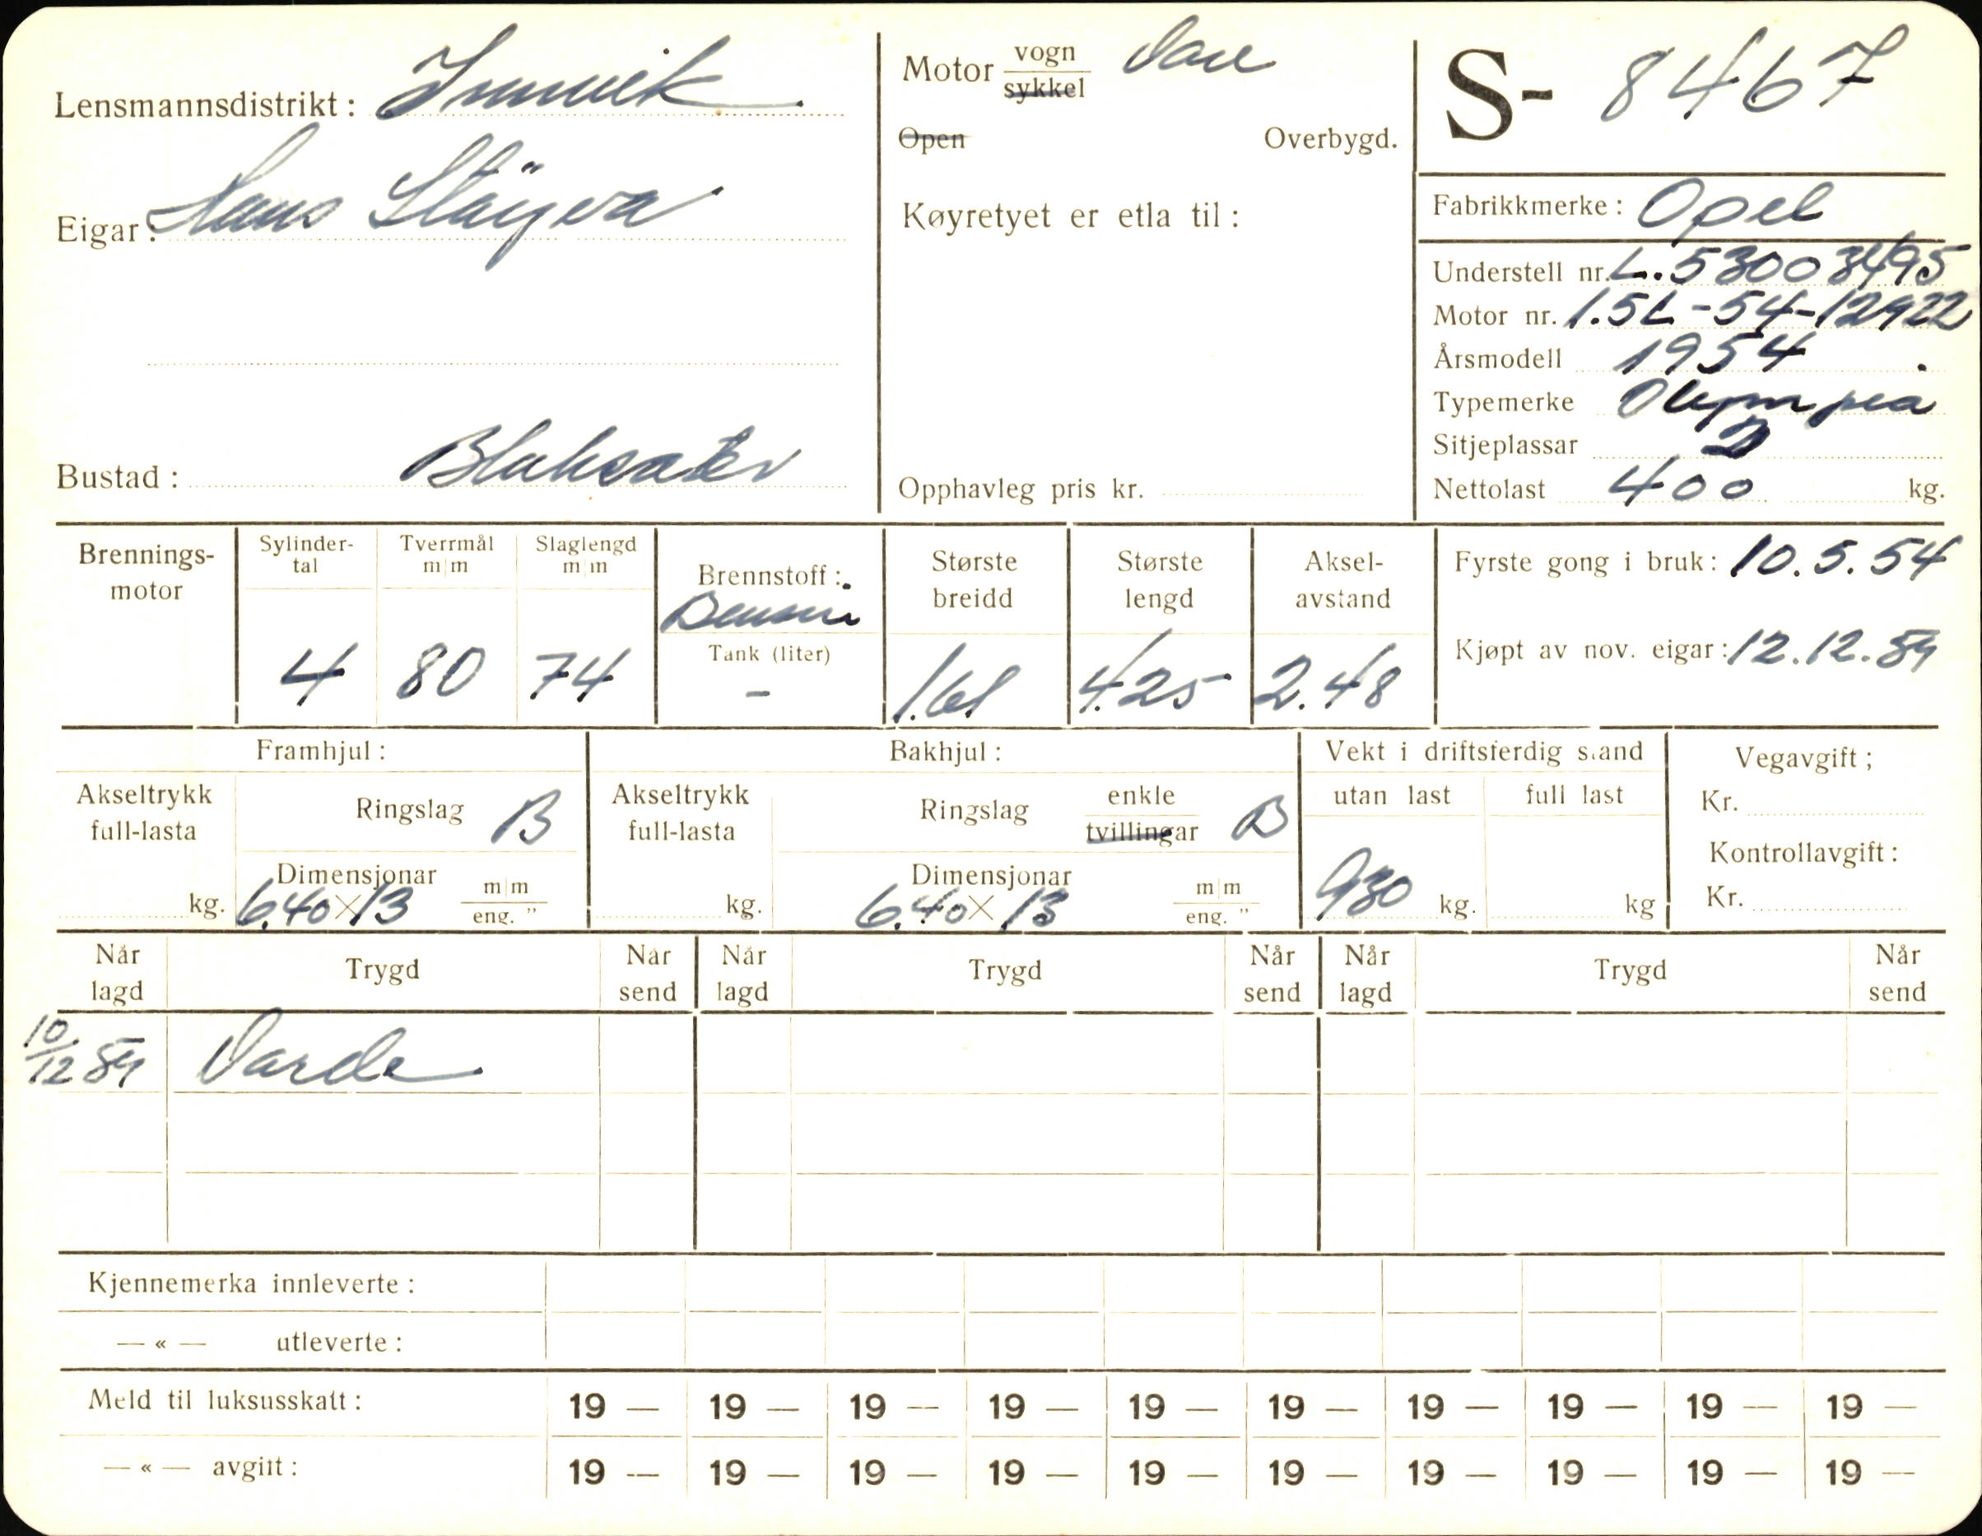 Lensmannsdistrikt: Innvik
Eigar: Hans Støyva
Bustad: Blaksæter
Motor vogn Vare
sykkel
Open Overbygd.
Køyretyet er etla til:
Opphavleg pris kr.
S- 8467
Fabrikkmerke: Opel
Understell nr. L.53003495
Motor nr. 1.5L-54-12922
Årsmodell 1954
Typemerke Olympia
Sitjeplassar 2
Nettolast 400 kg.
Brennings-
motor
Sylinder-
tal
4
Tverrmål
m|m
80
Slaglengd
m|m
74
Brennstoff:
Bensin
Tank (liter)
-
Største
breidd
1.61
Største
lengd
4.25
Aksel-
avstand
2.48
Fyrste gong i bruk: 10.5.54
Kjøpt av nov. eigar: 12.12.59
Framhjul:
Akseltrykk
full-lasta
kg.
Ringslag B
Dimensjonar
6.40 X 13 m|m
eng. "
Bakhjul:
Akseltrykk
full-lasta
kg.
Ringslag enkle B
tvillingar
Dimensjonar
6.40 X 13 m|m
eng. "
Vekt i driftsferdig stand
utan last full last
930 kg. kg
Vegavgift;
Kr.
Kontrollavgift:
Kr.
Når
lagd Trygd Når
send Når
lagd Trygd Når
send Når
lagd Trygd Når
send
10/12 59 Varde
Kjennemerka innleverte:
— « — utleverte:
Meld til luksusskatt: 19 — 19 — 19 — 19 — 19 — 19 — 19 — 19 — 19 — 19 —
— « — avgift: 19 — 19 — 19 — 19 — 19 — 19 — 19 — 19 — 19 — 19 —